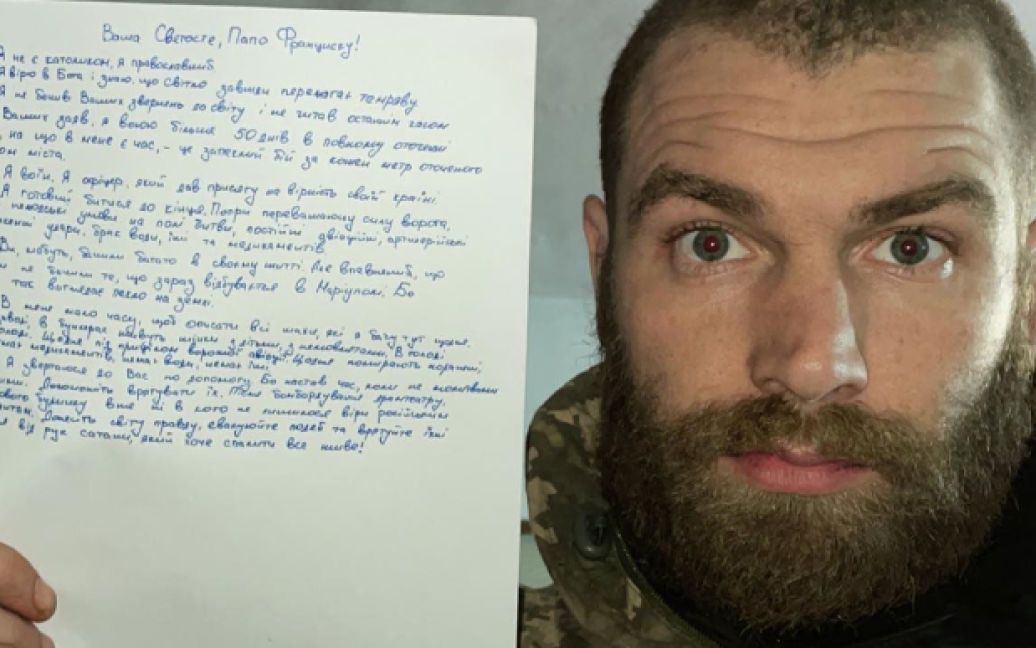 Ваша Светосте, Папо Франциску!
Я не є католиком, я православний.
Я вірю в Бога і знаю, що світло завжди перемагає темряву.
Я не бачив Ваших звернень до світу і не читав останнім часом
Ваших заяв, я воюю більше 50 днів в повному оточенні
на що в мене є час, - це запеклий бій за кожен метр оточеного
міста.
Я воїн. Я офіцер, який дав присягу на вірність своїй країні.
Я готовий битися до кінця. Попри переважаючу силу ворога,
умови на полі битви, постійні авіаційні, артилерійські
удари, брак води, їжі та медикаментів.
Ви, мабуть, бачили багато в своєму житті. Але впевнений, що
не бачили те, що зараз відбувається в Маріуполі. Бо
так виглядає пекло на землі.
В мене мало часу, щоб описати всі жахи, які я бачу тут щодня.
в бункерах живуть жінки з дітьми, з немовлятами. В голоді
Щодня під прицілом ворожої авіації. Щодня помирають поранені,
медикаментів, немає води, немає їжі.
Я звертаюся до Вас по допомогу. Бо настав час, коли не молитвами
Допоможіть врятувати їх. Після бомбардування драмтеатру,
вже ні в кого не лишилося віри російським
Донесіть світу правду, евакуюйте людей та врятуйте їхні
від рук сатани, який хоче спалити все живе!